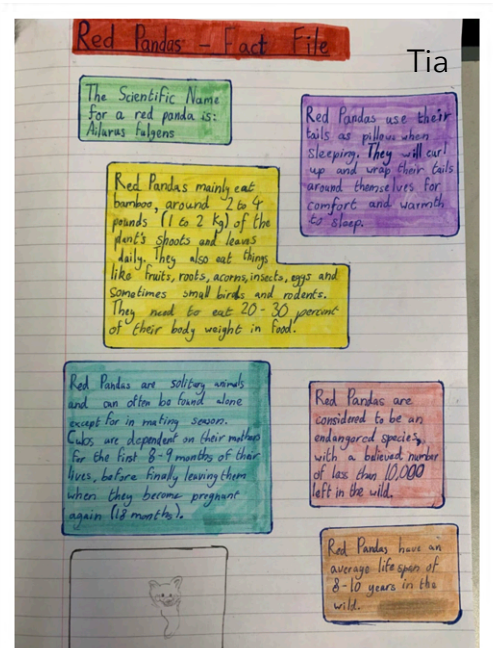 Red Pandas - Fact File
Tia
The Scientific Name
for a red panda is:
Ailarus fulgens
Red Pandas use their
tails as pillows when
sleeping. They will curl
up and wrap their tails
around themselves for
comfort and warmth
to sleep.
Red Pandas mainly eat
bamboo, around 2 to 4
pounds (1 to 2 kg) of the
plant's shoots and leaves
daily. They also eat things
like fruits, roots, acorns, insects, eggs and
sometimes small birds and rodents.
They need to eat 20-30 percent
of their body weight in food.
Red Pandas are solitary animals
and can often be found alone
except for in mating season.
Cubs are dependent on their mothers
for the first 8-9 months of their
lives, before finally leaving them
when they become pregnant
again (18 months).
Red Pandas are
considered to be an
endangored species,
with a believed number
of less than 10,000
left in the wild.
Red Pandas have an
average life span of
8-10 years in the
wild.